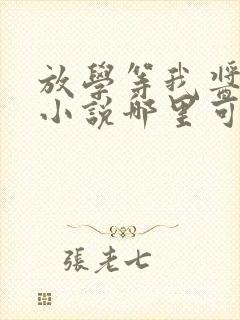 放學等我醬
小說哪里可
張老七